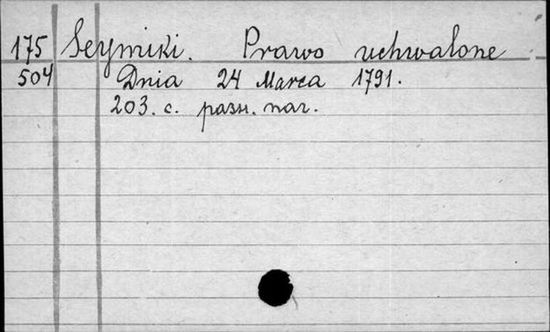 175 Seymiki. Prawo uchwalone
504 Dnia 24 Marca 1791.
203. c. pasu. nar.